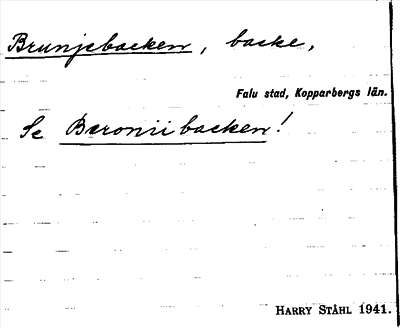 Brunjebacken, backe,
Falu stad, Kopparbergs län.
Se Baroniibacken!
HARRY STÅHL 1941.